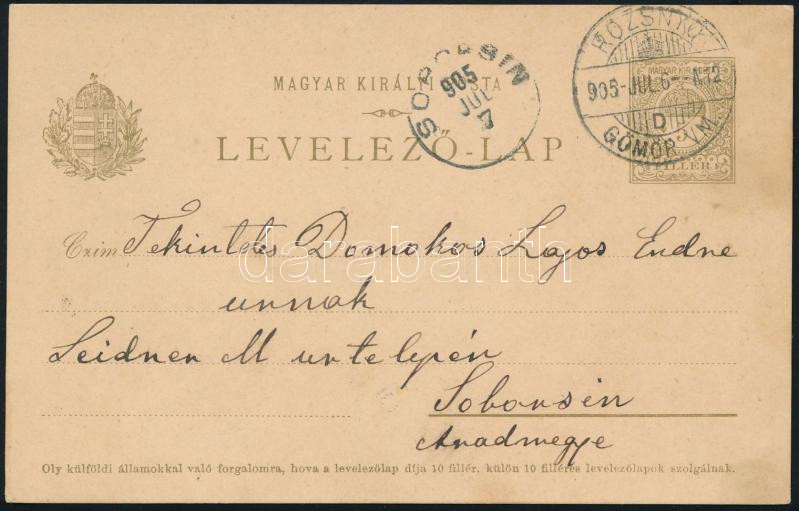 MAGYAR KIRÁLYI POSTA
LEVELEZŐ-LAP
SOBORSIN
905
JUL
7
ROZSNYÓ
905-JUL.6--N12
D
GÖMÖR VM.
MAGYAR KIR.
FILLÉR
Czim Tekintetes Domokos Lajos Endre
urnak
Seidner M urtelepén
Soborsin
Aradmegye
Oly külföldi államokkal való forgalomra, hova a levelezőlap díja 10 fillér, külön 10 filléres levelezőlapok szolgálnak.
darabanth